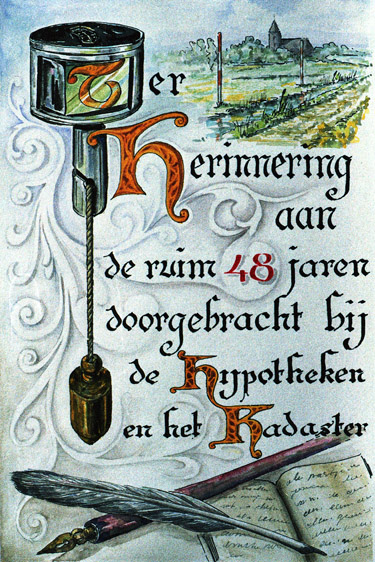 Ter
Herinnering
aan
de ruim 48 jaren
doorgebracht bij
de Hypotheken
en het Kadaster